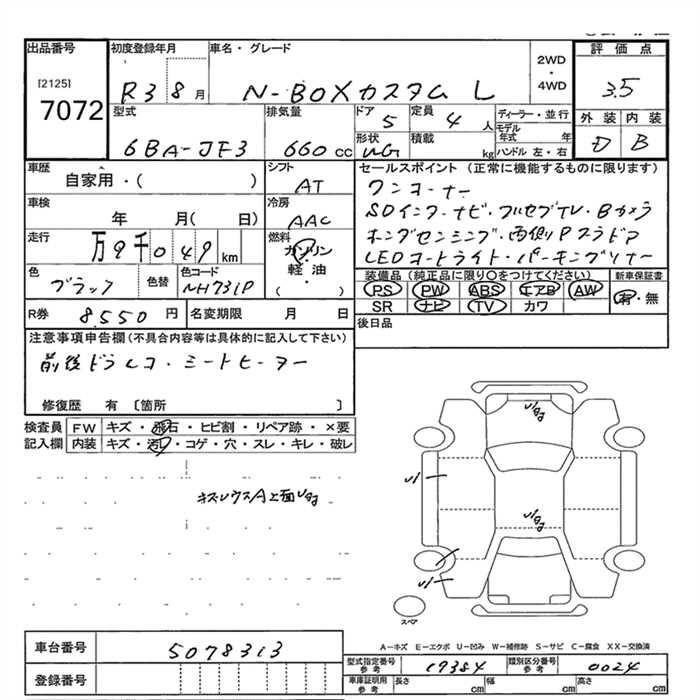 出品番号
[2125]
7072
初度登録年月
R3 8月
車名・グレード
N-BOXカスタム L
2WD
・
4WD
評価点
3.5
外装 内装
D B
型式
6BA-JF3
排気量
660 cc
ドア
5
定員
4 人
形状
WG
積載
kg
ディーラー・並行
モデル年式 年
ハンドル 左・右
車歴
自家用・( )
シフト
AT
車検
年 月( 日)
冷房
AAC
走行
万9千049 km
燃料
ガソリン
・
軽・油
( )
色
ブラック
色替
色コード
NH731P
R券
8,550 円
名変期限 月 日
セールスポイント (正常に機能するものに限ります)
ワンオーナー
SDインターナビ・フルセグTV・Bカメラ
ホンダセンシング・両側Pスラドア
LEDオートライト・パーキングソナー
装備品 (純正品に限り○をつけてください)
PS PW ABS エアB AW
SR ナビ TV カワ
新車保証書
有・無
後日品
注意事項申告欄(不具合内容等は具体的に記入して下さい)
前後ドラレコ・シートヒーター
修復歴 有 [箇所 ]
検査員記入欄
FW キズ・飛石・ヒビ割・リペア跡・×要
内装 キズ・汚れ・コゲ・穴・スレ・キレ・破レ
スペア
A-キズ E-エクボ U-凹み W-補修跡 S-サビ C-腐食 XX-交換済
車台番号
5078313
登録番号
型式指定番号 参考
19384
類別区分番号 参考
0024
車庫証明用 参考
長さ cm 幅 cm 高さ cm